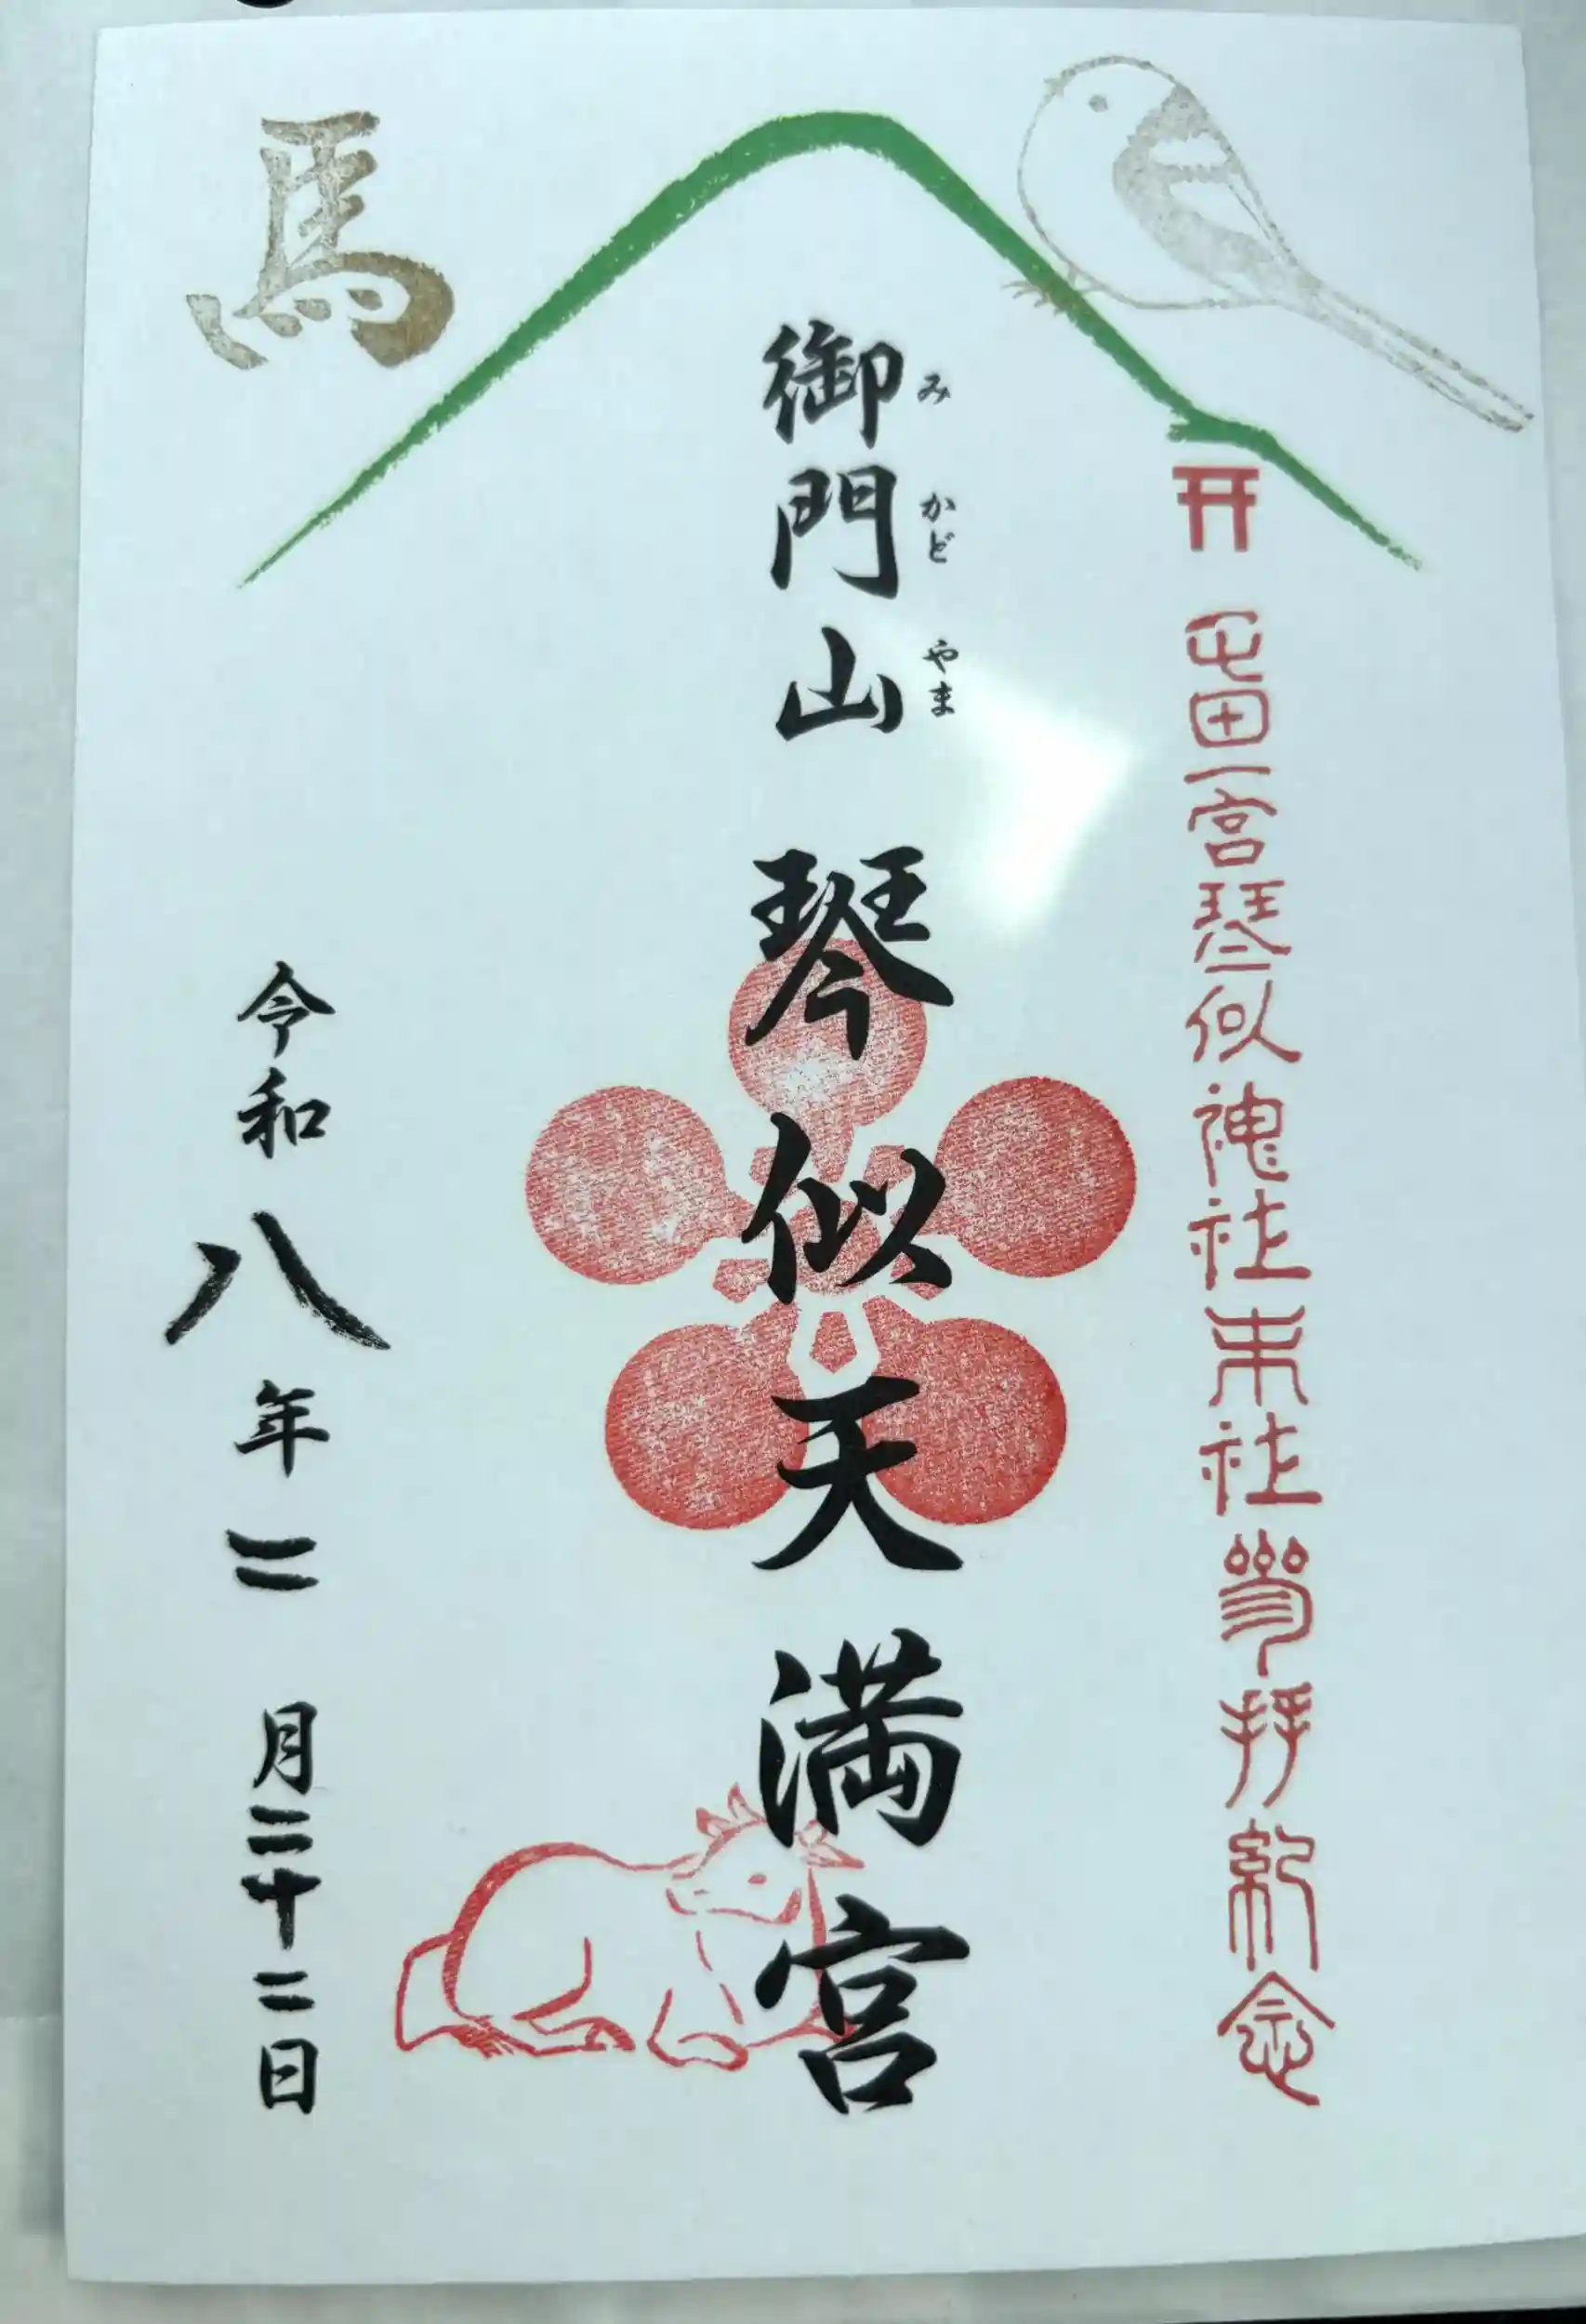 屯田一宮琴似神社末社参拝紀念
みかどやま
御門山 琴似天満宮
馬
令和八年二月二十二日